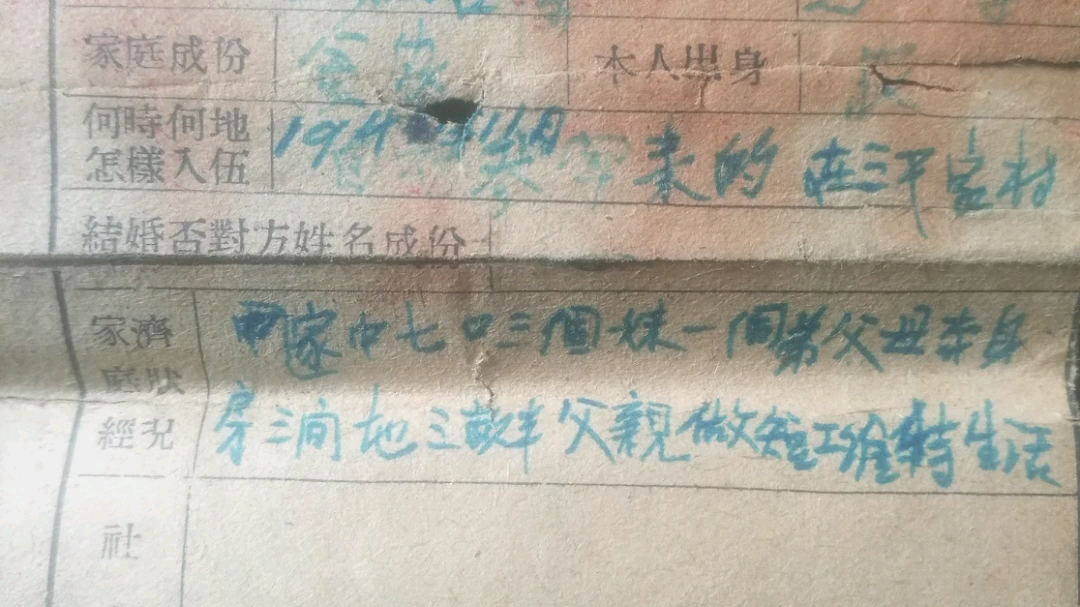 家庭成份 貧農 本人出身 農
何時何地
怎樣入伍
年11月 自 參軍 來的 在三平家村
結婚否對方姓名成份
家庭經濟狀況
家中七口三個妹一個弟父母本身
房三间地三畝半父親做短工维持生活
社